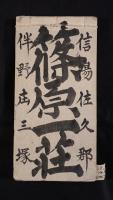 信陽佐久郡
篠原一荘
伴野庄三塚